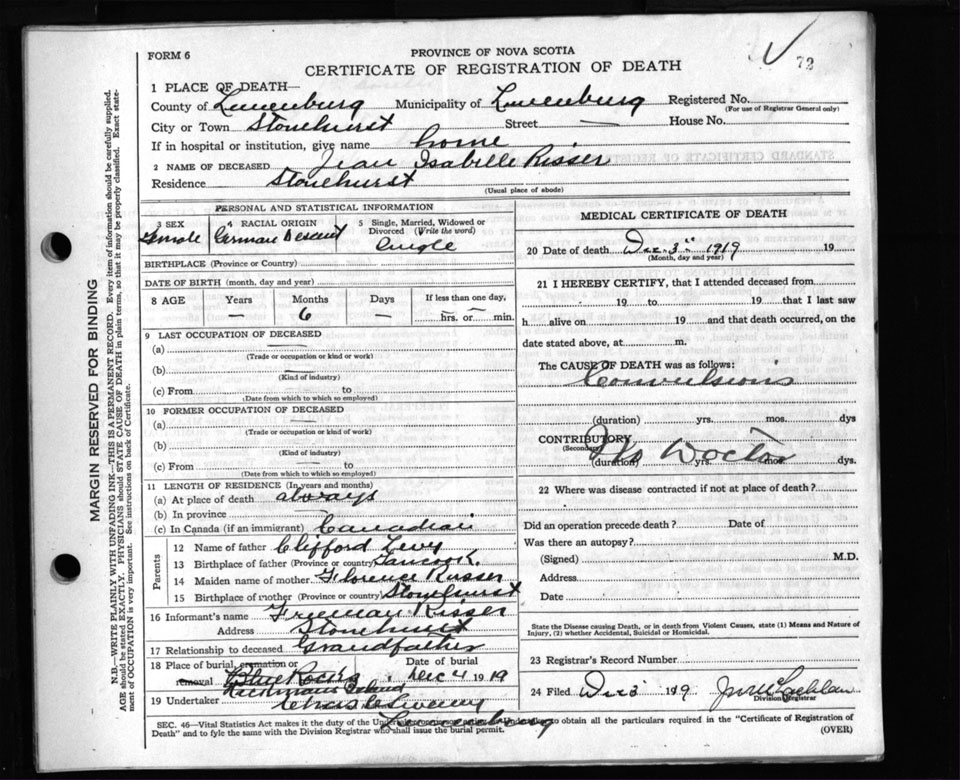 FORM 6
PROVINCE OF NOVA SCOTIA
72
CERTIFICATE OF REGISTRATION OF DEATH
1 PLACE OF DEATH—
County of Lunenburg Municipality of Lunenburg Registered No.
(For use of Registrar General only)
City or Town Stonehurst Street — House No.
If in hospital or institution, give name home
2 NAME OF DECEASED Jean Isabelle Risser
Residence Stonehurst
(Usual place of abode)
PERSONAL AND STATISTICAL INFORMATION
3 SEX 4 RACIAL ORIGIN 5 Single, Married, Widowed or Divorced (Write the word)
Female German Descent Single
BIRTHPLACE (Province or Country)
DATE OF BIRTH (month, day and year)
8 AGE Years Months Days If less than one day,
— 6 — hrs. or min.
9 LAST OCCUPATION OF DECEASED
(a)
(Trade or occupation or kind or work)
(b)
(Kind of industry)
(c) From to
(Date from which to which so employed)
10 FORMER OCCUPATION OF DECEASED
(a)
(Trade or occupation or kind of work)
(b)
(Kind of industry)
(c) From to
(Date from which to which so employed)
11 LENGTH OF RESIDENCE (In years and months)
(a) At place of death always
(b) In province
(c) In Canada (if an immigrant) Canadian
Parents
12 Name of father Clifford Levy
13 Birthplace of father (Province or country) Tancook.
14 Maiden name of mother Florence Risser
15 Birthplace of mother (Province or country) Stonehurst
16 Informant's name Freeman Risser
Address Stonehurst
17 Relationship to deceased Grandfather
18 Place of burial, cremation or removal Date of burial
Blue Rocks Dec 4 1919
Island
19 Undertaker Chas
Lunenburg
MEDICAL CERTIFICATE OF DEATH
20 Date of death Dec. 3 1919 19
(Month, day and year)
21 I HEREBY CERTIFY, that I attended deceased from
19 to 19 that I last saw
h alive on 19 and that death occurred, on the
date stated above, at m.
The CAUSE OF DEATH was as follows:
Convulsions
(duration) yrs. mos. dys
CONTRIBUTORY
(Secondary)
No Doctor
(duration) yrs. mos. dys.
22 Where was disease contracted if not at place of death?
Did an operation precede death? Date of
Was there an autopsy?
(Signed) M.D.
Address
Date
State the Disease causing Death, or in death from Violent Causes, state (1) Means and Nature of
Injury, (2) whether Accidental, Suicidal or Homicidal.
23 Registrar's Record Number
24 Filed Dec 3 1919
Division Registrar
SEC. 46—Vital Statistics Act makes it the duty of the Undertaker to obtain all the particulars required in the "Certificate of Registration of
Death" and to fyle the same with the Division Registrar who shall issue the burial permit.
(OVER)
MARGIN RESERVED FOR BINDING
N.B.—WRITE PLAINLY WITH UNFADING INK—THIS IS A PERMANENT RECORD. Every item of information should be carefully supplied.
AGE should be stated EXACTLY. PHYSICIANS should STATE CAUSE OF DEATH in plain terms, so that it may be properly classified. Exact state-
ment of OCCUPATION is very important. See instructions on back of Certificate.